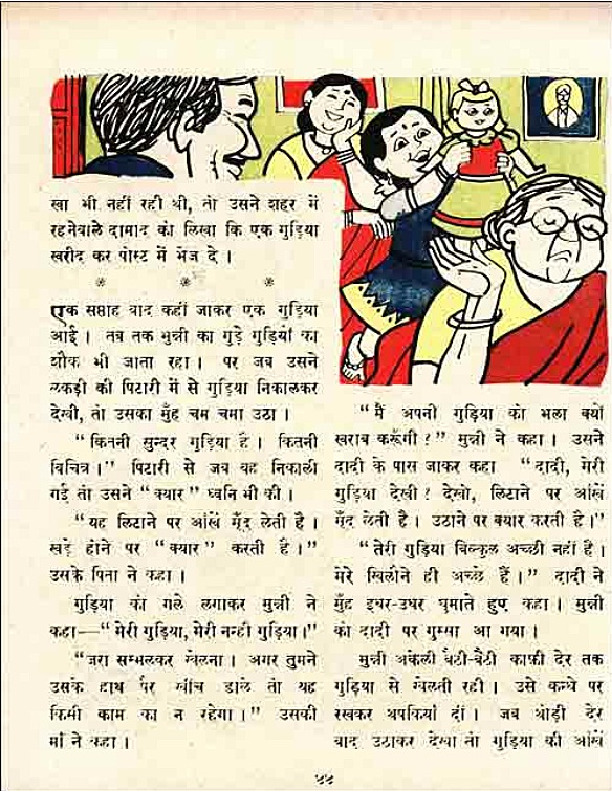 खा भी नहीं रही थी, तो उसने शहर में
रहनेवाले दामाद को लिखा कि एक गुड़िया
खरीद कर पोस्ट में भेज दे ।
* * *
एक सप्ताह बाद कहीं जाकर एक गुड़िया
आई । तब तक मुन्नी का गुड्डे गुड़ियों का
शौक भी जाता रहा । पर जब उसने
लकड़ी की पिटारी में से गुड़िया निकालकर
देखी, तो उसका मुँह चम चमा उठा ।
“कितनी सुन्दर गुड़िया है । कितनी
विचित्र ।” पिटारी से जब वह निकाली
गई तो उसने “क्यार” ध्वनि भी की ।
“यह लिटाने पर आँखें मूँद लेती है ।
खड़े होने पर “क्यार” करती है ।”
उसके पिता ने कहा ।
गुड़िया को गले लगाकर मुन्नी ने
कहा—“मेरी गुड़िया, मेरी नन्ही गुड़िया ।”
“जरा सम्भलकर खेलना । अगर तुमने
उसके हाथ पैर खींच डाले तो यह
किसी काम का न रहेगा ।” उसकी
माँ ने कहा ।
“मैं अपनी गुड़िया को भला क्यों
खराब करूँगी ?” मुन्नी ने कहा । उसने
दादी के पास जाकर कहा “दादी, मेरी
गुड़िया देखी ? देखो, लिटाने पर आँखें
मूँद लेती है । उठाने पर क्यार करती है ।”
“तेरी गुड़िया बिल्कुल अच्छी नहीं है ।
मेरे खिलौने ही अच्छे हैं ।” दादी ने
मुँह इधर-उधर घुमाते हुए कहा । मुन्नी
को दादी पर गुस्सा आ गया ।
मुन्नी अकेली बैठी-बैठी काफ़ी देर तक
गुड़िया से खेलती रही । उसे कन्धे पर
रखकर थपकियाँ दीं । जब थोड़ी देर
बाद उठाकर देखा तो गुड़िया की आँखें
५५